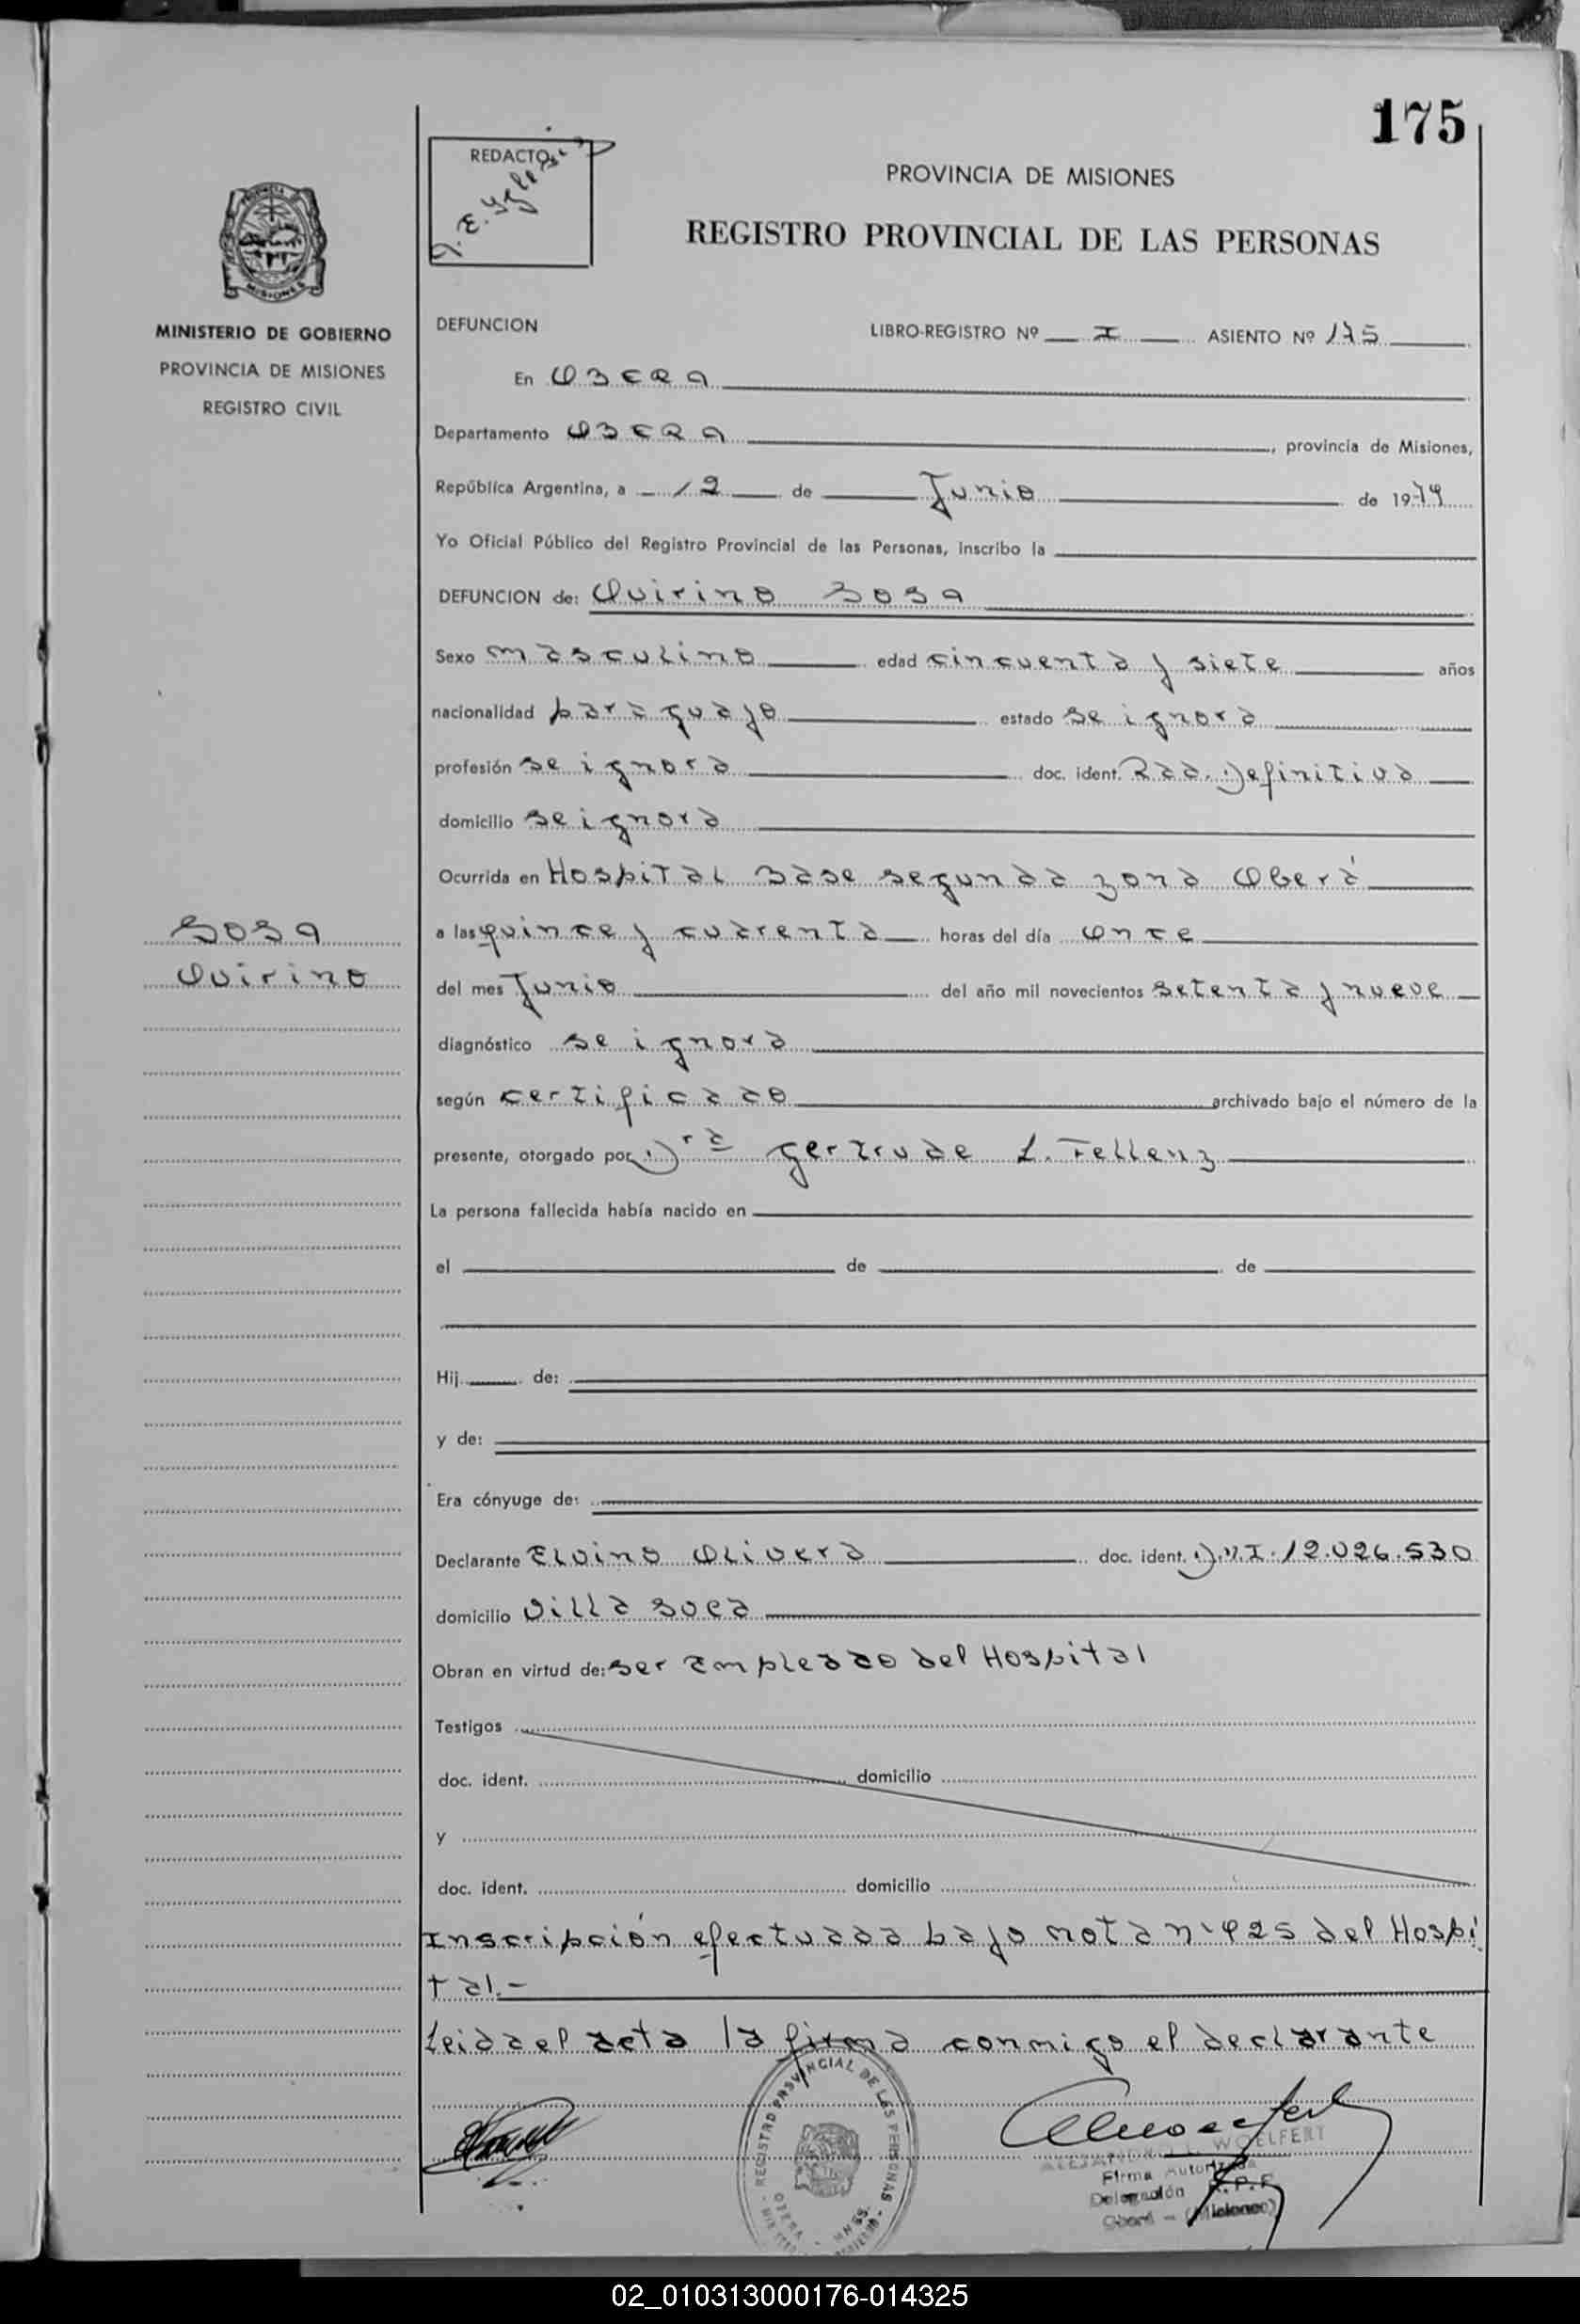 175
REDACTO
PROVINCIA DE MISIONES
REGISTRO PROVINCIAL DE LAS PERSONAS
MISIONES
MINISTERIO DE GOBIERNO
PROVINCIA DE MISIONES
REGISTRO CIVIL
DEFUNCION LIBRO-REGISTRO Nº I ASIENTO Nº 175
En OBERA
Departamento OBERA, provincia de Misiones,
República Argentina, a 12 de Junio de 1979
Yo Oficial Público del Registro Provincial de las Personas, inscribo la
DEFUNCION de: Quirino Sosa
Sexo masculino edad cincuenta y siete años
nacionalidad paraguayo estado se ignora
profesión se ignora doc. ident. Rad. Definitiva
domicilio se ignora
Ocurrida en Hospital Base segunda zona Oberá
a las quince y cuarenta horas del día once
del mes Junio del año mil novecientos setenta y nueve
diagnóstico se ignora
según certificado archivado bajo el número de la
presente, otorgado por Dra Gertrude L. Fellenz
La persona fallecida había nacido en
el de de
Hij de:
y de:
Era cónyuge de:
Declarante Elvino Olivera doc. ident. D.N.I. 12.026.530
domicilio Villa Sueca
Obran en virtud de: ser empleado del Hospital
Testigos
doc. ident. domicilio
y
doc. ident. domicilio
Inscripción efectuada bajo nota nº 425 del Hospi
tal.-
Leida el acta la firma conmigo el declarante
Sosa
Quirino
REGISTRO PROVINCIAL DE LAS PERSONAS
OBERA
WOELFERT
Firma Autorizada
Delegación R.P.P.
Oberá - (Misiones)
02_010313000176-014325